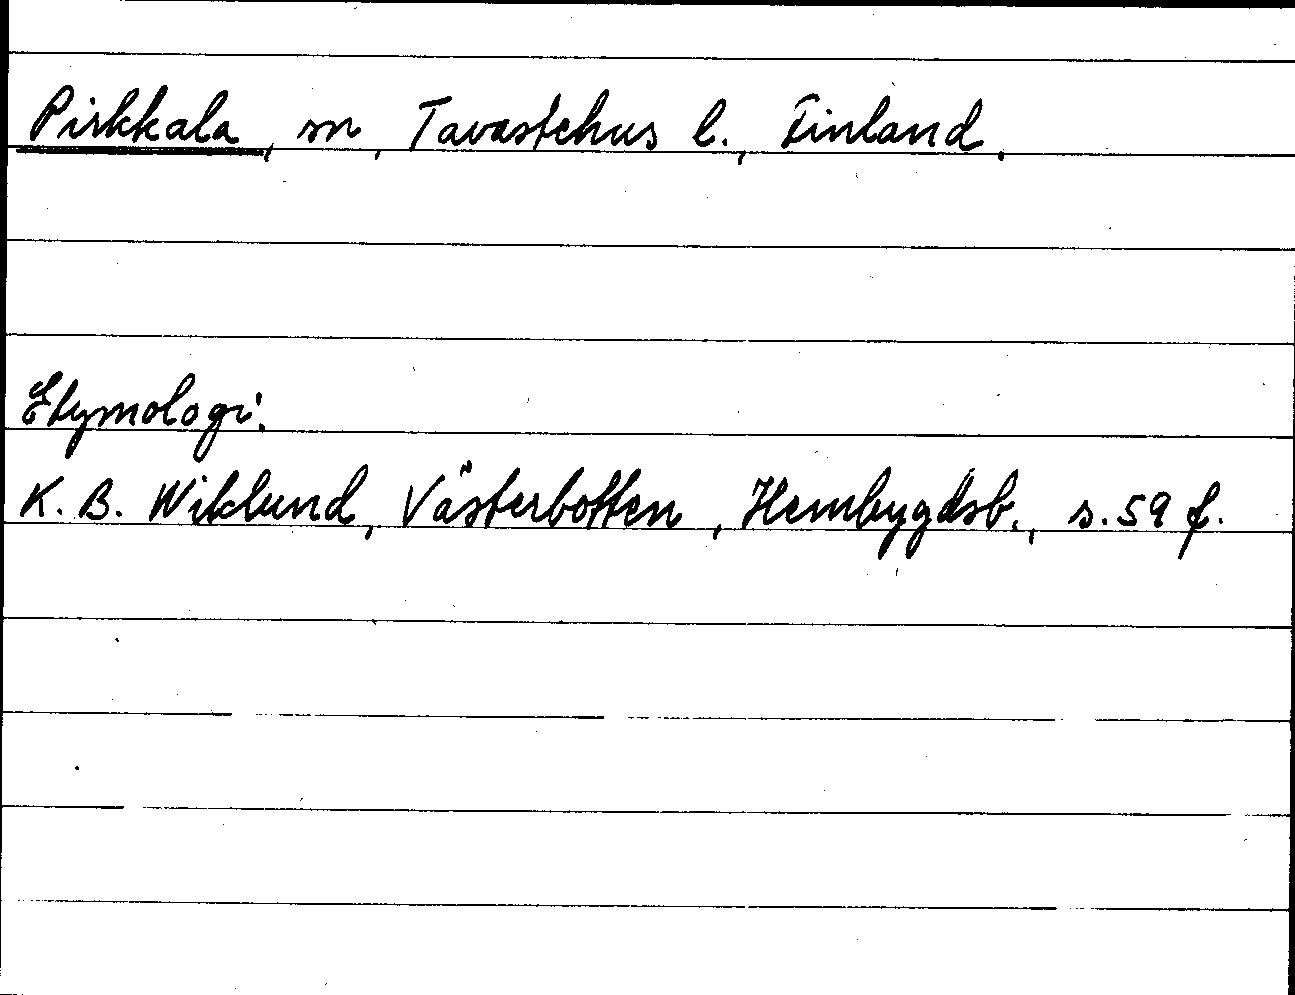 Pirkkala, sn, Tavastehus l., Finland.
Etymologi.
K. B. Wiklund, Västerbotten, Hembygdsb., s. 59 f.